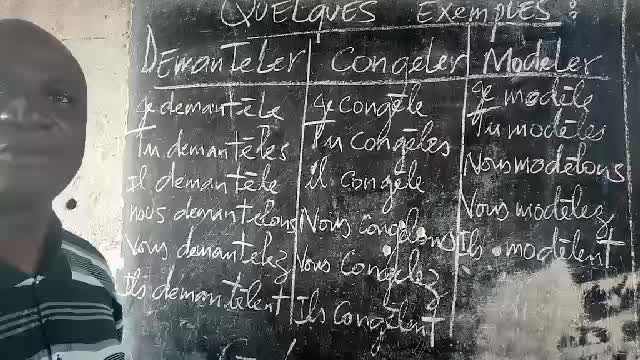 QUELQUES Exemples :
DEmanTeLer
Je demantèle
Tu demantèles
Il demantèle
nous demantelons
Vous demantelez
Ils demantèlent
Congeler
Je congèle
Tu congèles
il congèle
Nous congelons
Vous Congelez
Ils Congèlent
Modeler
Je modèle
Tu modèles
Nous modèlons
Vous modèlez
Ils modèlent